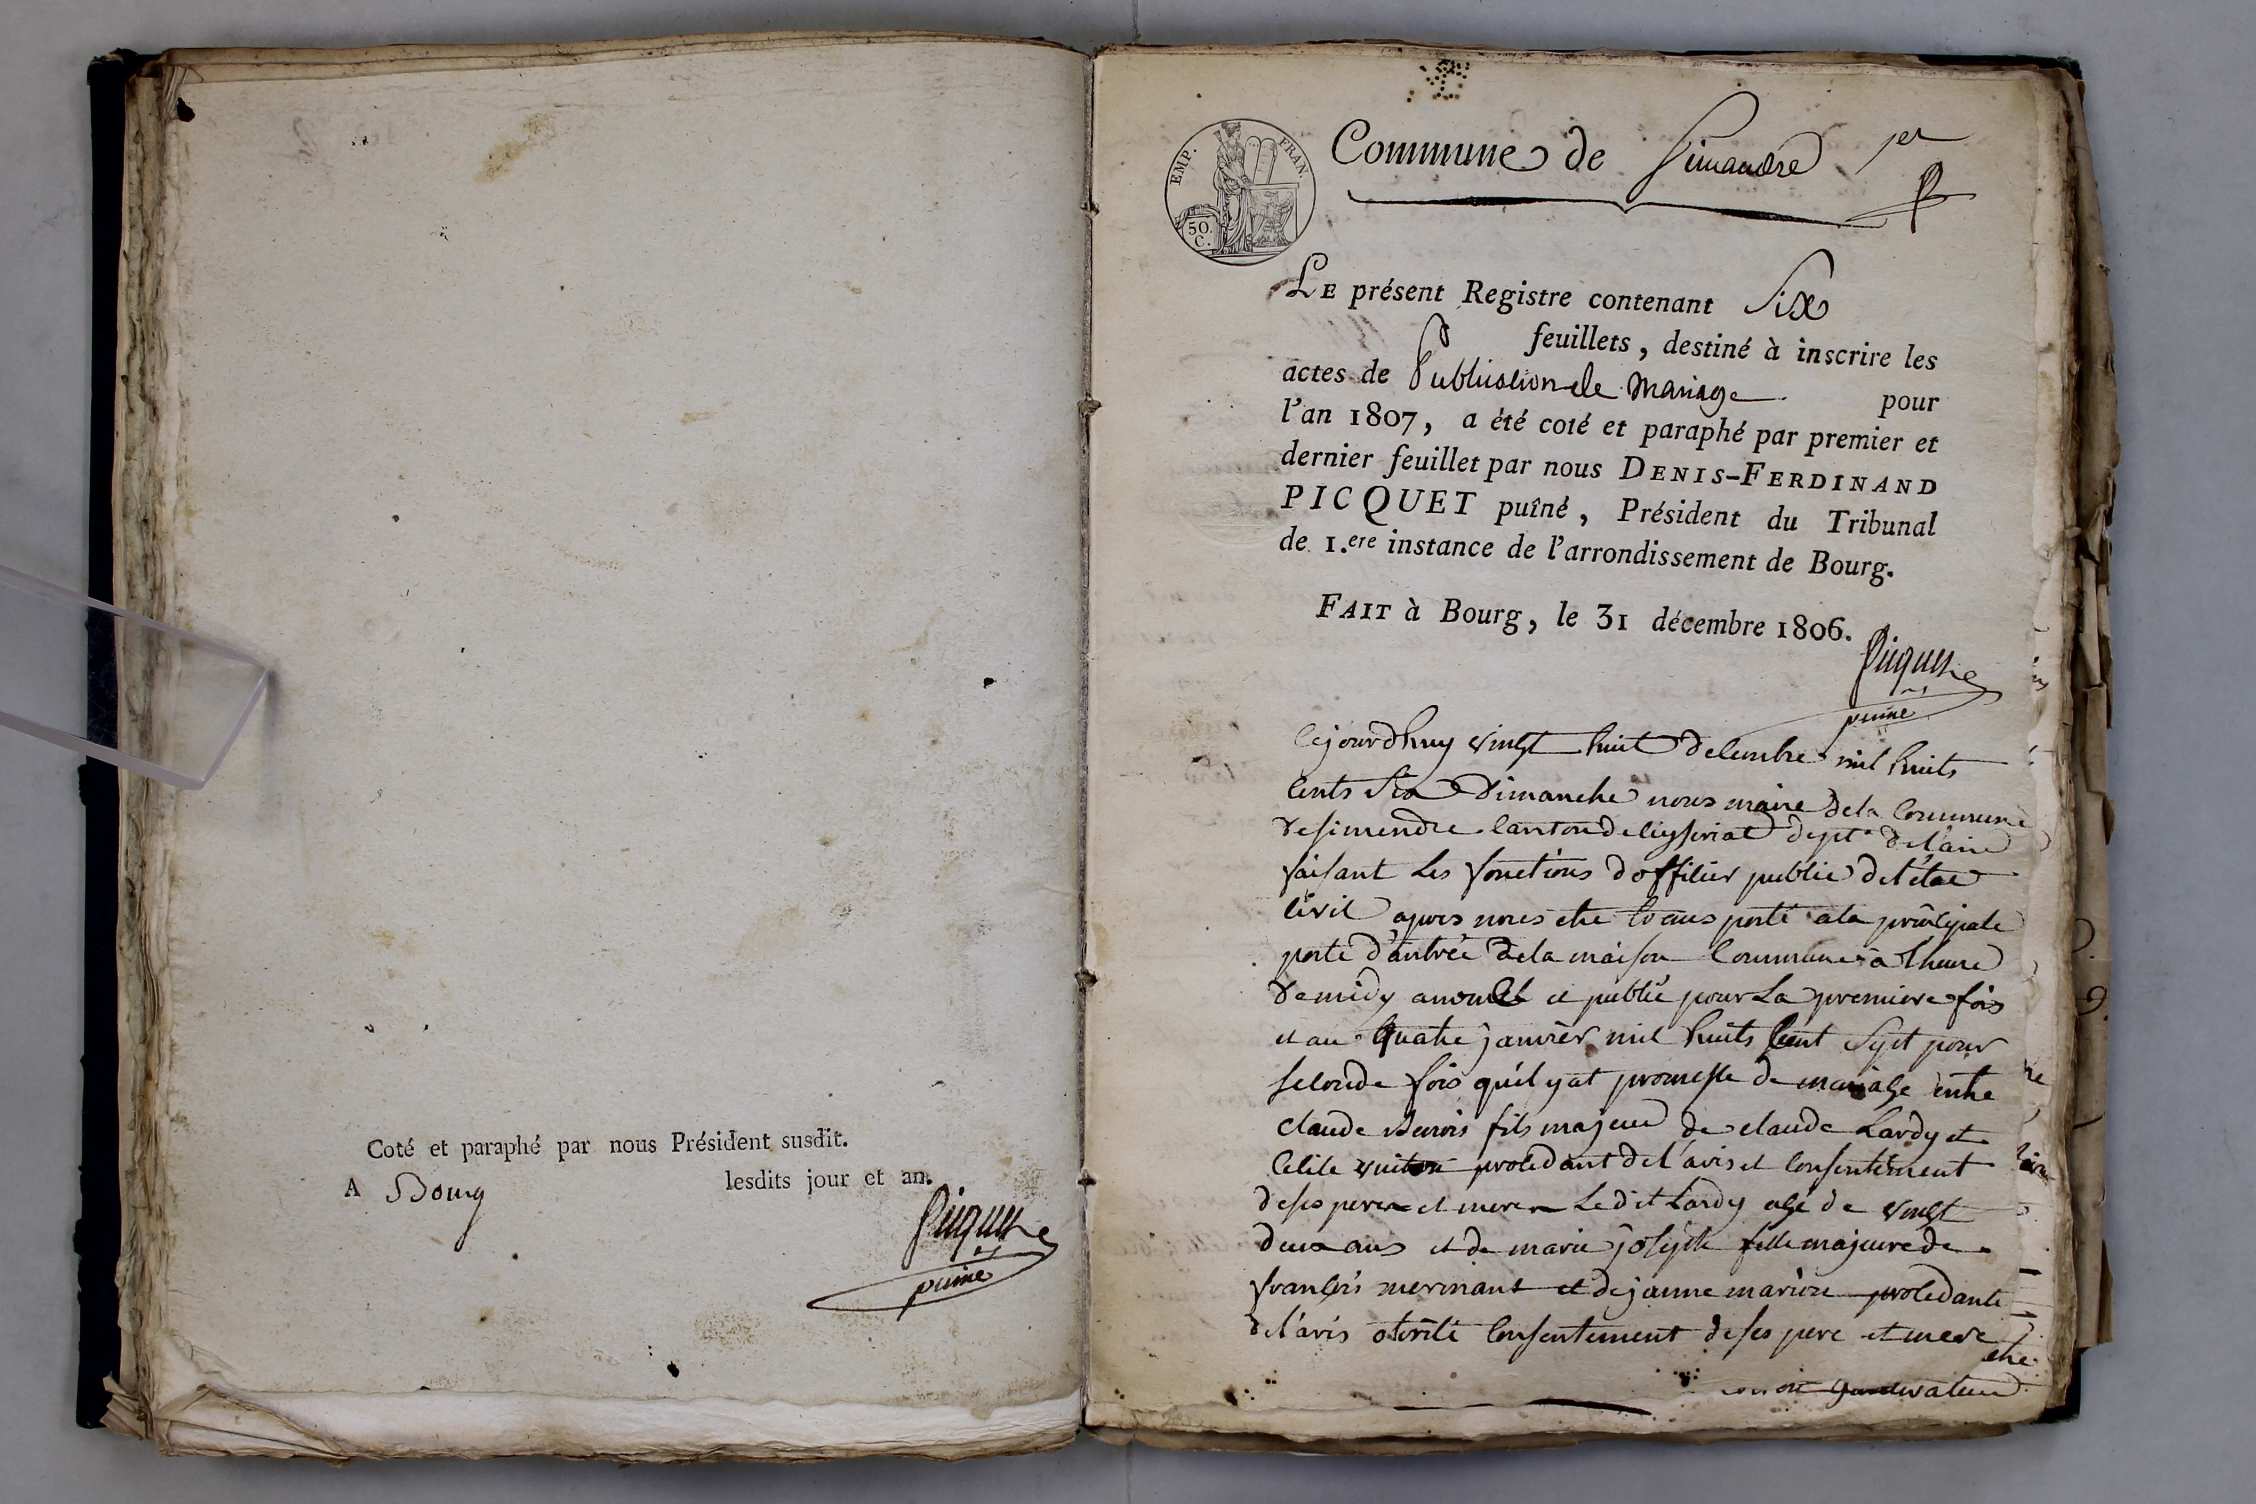 Coté et paraphé par nous Président susdit.
A Bourg lesdits jour et an.
Picquet
puiné
EMP. FRAN.
50. C.
Commune de Simandre 1er
LE présent Registre contenant Six
feuillets, destiné à inscrire les
actes de Publication de Mariage pour
l'an 1807, a été coté et paraphé par premier et
dernier feuillet par nous DENIS-FERDINAND
PICQUET puîné, Président du Tribunal
de 1.ere instance de l'arrondissement de Bourg.
FAIT à Bourg, le 31 décembre 1806.
Picquet
puiné
Cejourdhuy vingt huit decembre mil huits
cents Six Dimanche nous maire dela Commune
desimendre canton de ceyseriat dept. de l'ain
faisant les fonctions d'officier public de l'état
civil apres nous etre porté ala principale
porte d'entrée dela maison Commune à lheure
de midy et publié pour La premiere fois
et au quatre janvier mil huits Cent Sept pour
seconde fois qu'il yat promesse de mariage entre
claude fils majeur de claude Lardy et
Celile procedant de l'avis et consentement
deses perere et merere Le dit Lardy agé de vingt
deux ans et de marie joseph fille majeure de
françois mermant et de janne marion procedante
de l'avis consentement de ses pere et mere